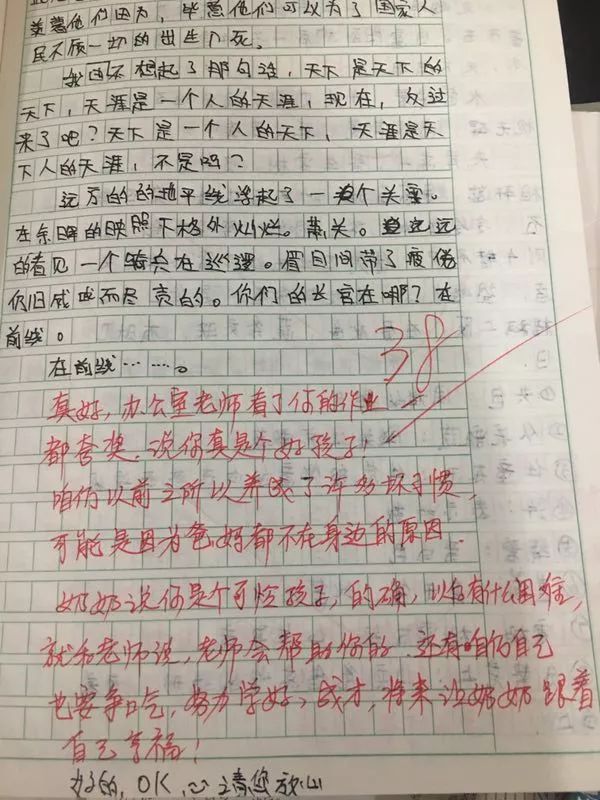 羡慕他们因为，毕竟他们可以为了国家人
民不顾一切的出生入死。
我不想起了那句话，天下是天下的
天下，天涯是一个人的天涯，现在，反过
来了吧？天下是一个人的天下，天涯是天
下人的天涯，不是吗？
远方的的地平线浮起了一个关塞。
在余晖的映照下格外灿烂。萧关。远远
的看见一个骑兵在巡逻。眉目间带了疲倦
仍旧威武而尽责的。你们的长官在哪？在
前线。
在前线……。
38
真好，办公室老师看了你的作业
都夸奖，说你真是个好孩子！
咱们以前之所以养成了许多坏习惯，
可能是因为爸妈都不在身边的原因．
奶奶说你是个可怜孩子，的确，以后有什么困难，
就和老师说，老师会帮助你的．还有咱们自己
也要争口气，努力学好，成才，将来让奶奶跟着
自己享福！
好的，OK，请您放心